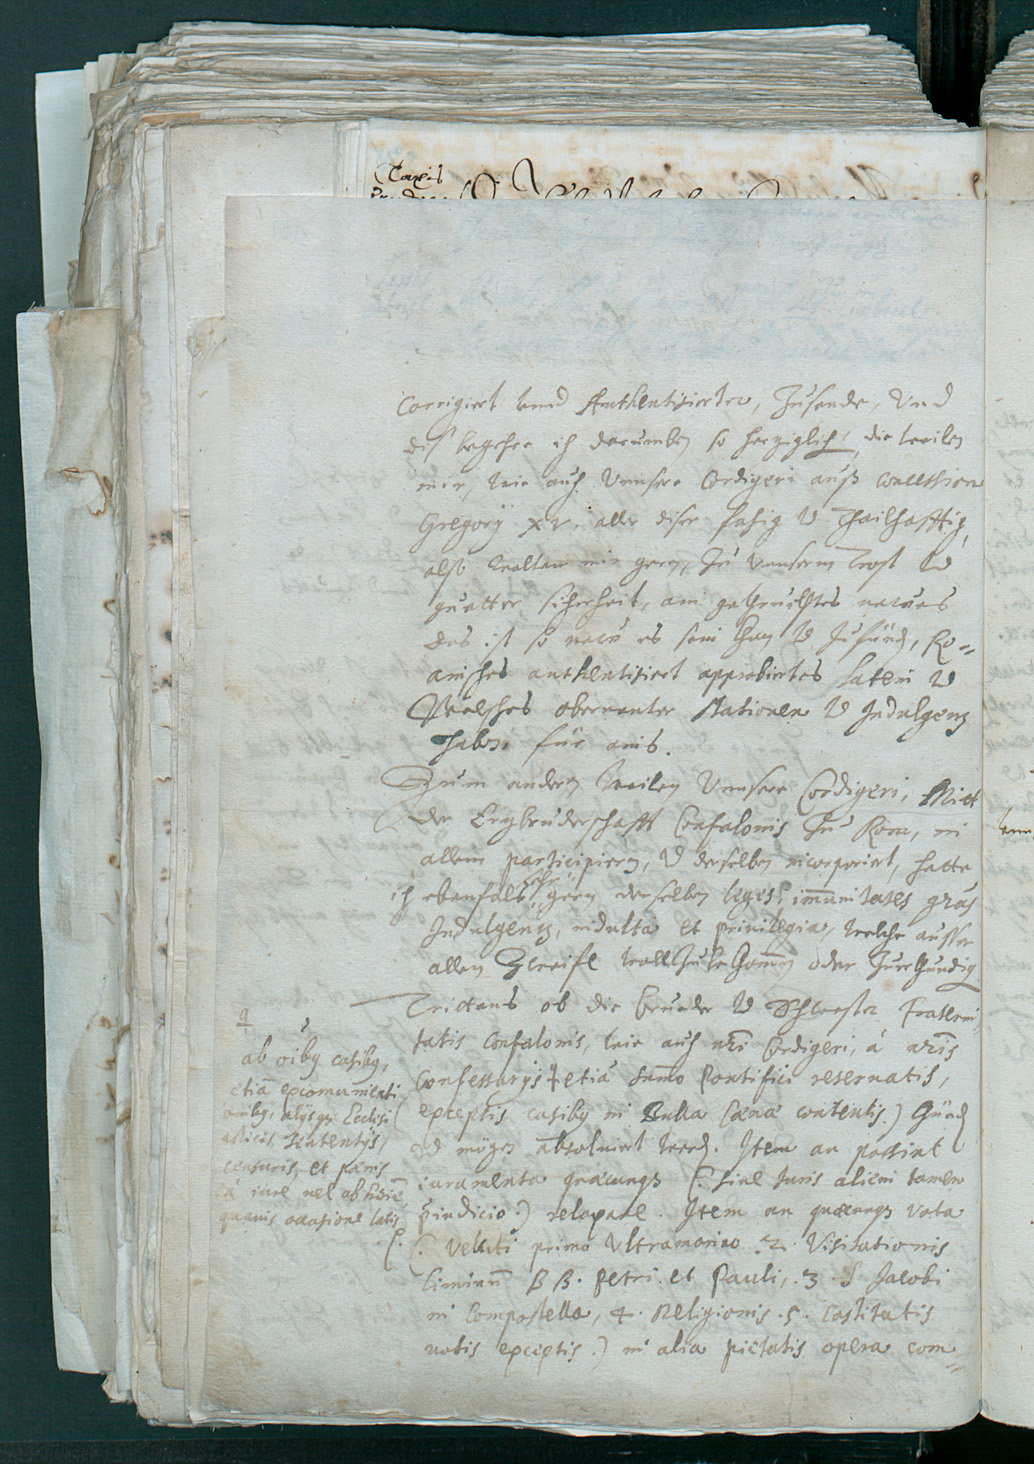 Taxis
corrigiert vnd Authentisierter, zusende, Vnd
diß begehre ich darumben so herziglich, die weilen
mir, wie auch Vnnsere Cordigeri auß concession
Gregorÿ XV. aller diser fähig v Thailhafftig,
also wolten mir gern, zu vnnserm Trost v
guetter sicherheit, ain getruckhtes newes
das ist so new es sein khan v zufünd, Ro=
anisches authentisiert approbiertes Latein v
Wälsches obernanter Stationen v Indulgenz
haben für ains.
Zum andern weilen Vnnsere Cordigeri, Mitt
der Erzbruderschafft Confalonis zu Rom, in
allem participiern, v derselben incorporirt, hette
ich ebenfals gern derselben legis, imunitates gras
Indulgenz, indulta et priuilegia, welche ausser
allen Zweifl woll zubekhomen oder zuerkhundig
Trittens ob die brueder v Schwester Fraterni
tatis Confalonis, wie auch nri Cordigeri, à nris
Confessarijs etiā Summo Pontifici reseruatis,
exceptis casibus in Bulla Cænæ contentis.) khünd
v mögen absoluiert werd. Item an possint
iuramenta quæcunqz (: sine Iuris alieni tamen
præiudicio :) relaxare. Item an quæcunqz vota
(: Veluti primò Vltramarino .2. Visitationis
Liminū BB. Petri et Pauli, .3. S Jacobi
in Compostella, 4. Religionis .5. Castitatis
uotis exceptis.) in alia pietatis opera com=
ab oibus casibus,
etiā excomunicati
onibus, alijsqz Ecclesi
asticis sententijs,
censuris, et pænis
à iure uel ab homine
quauis occasione latis